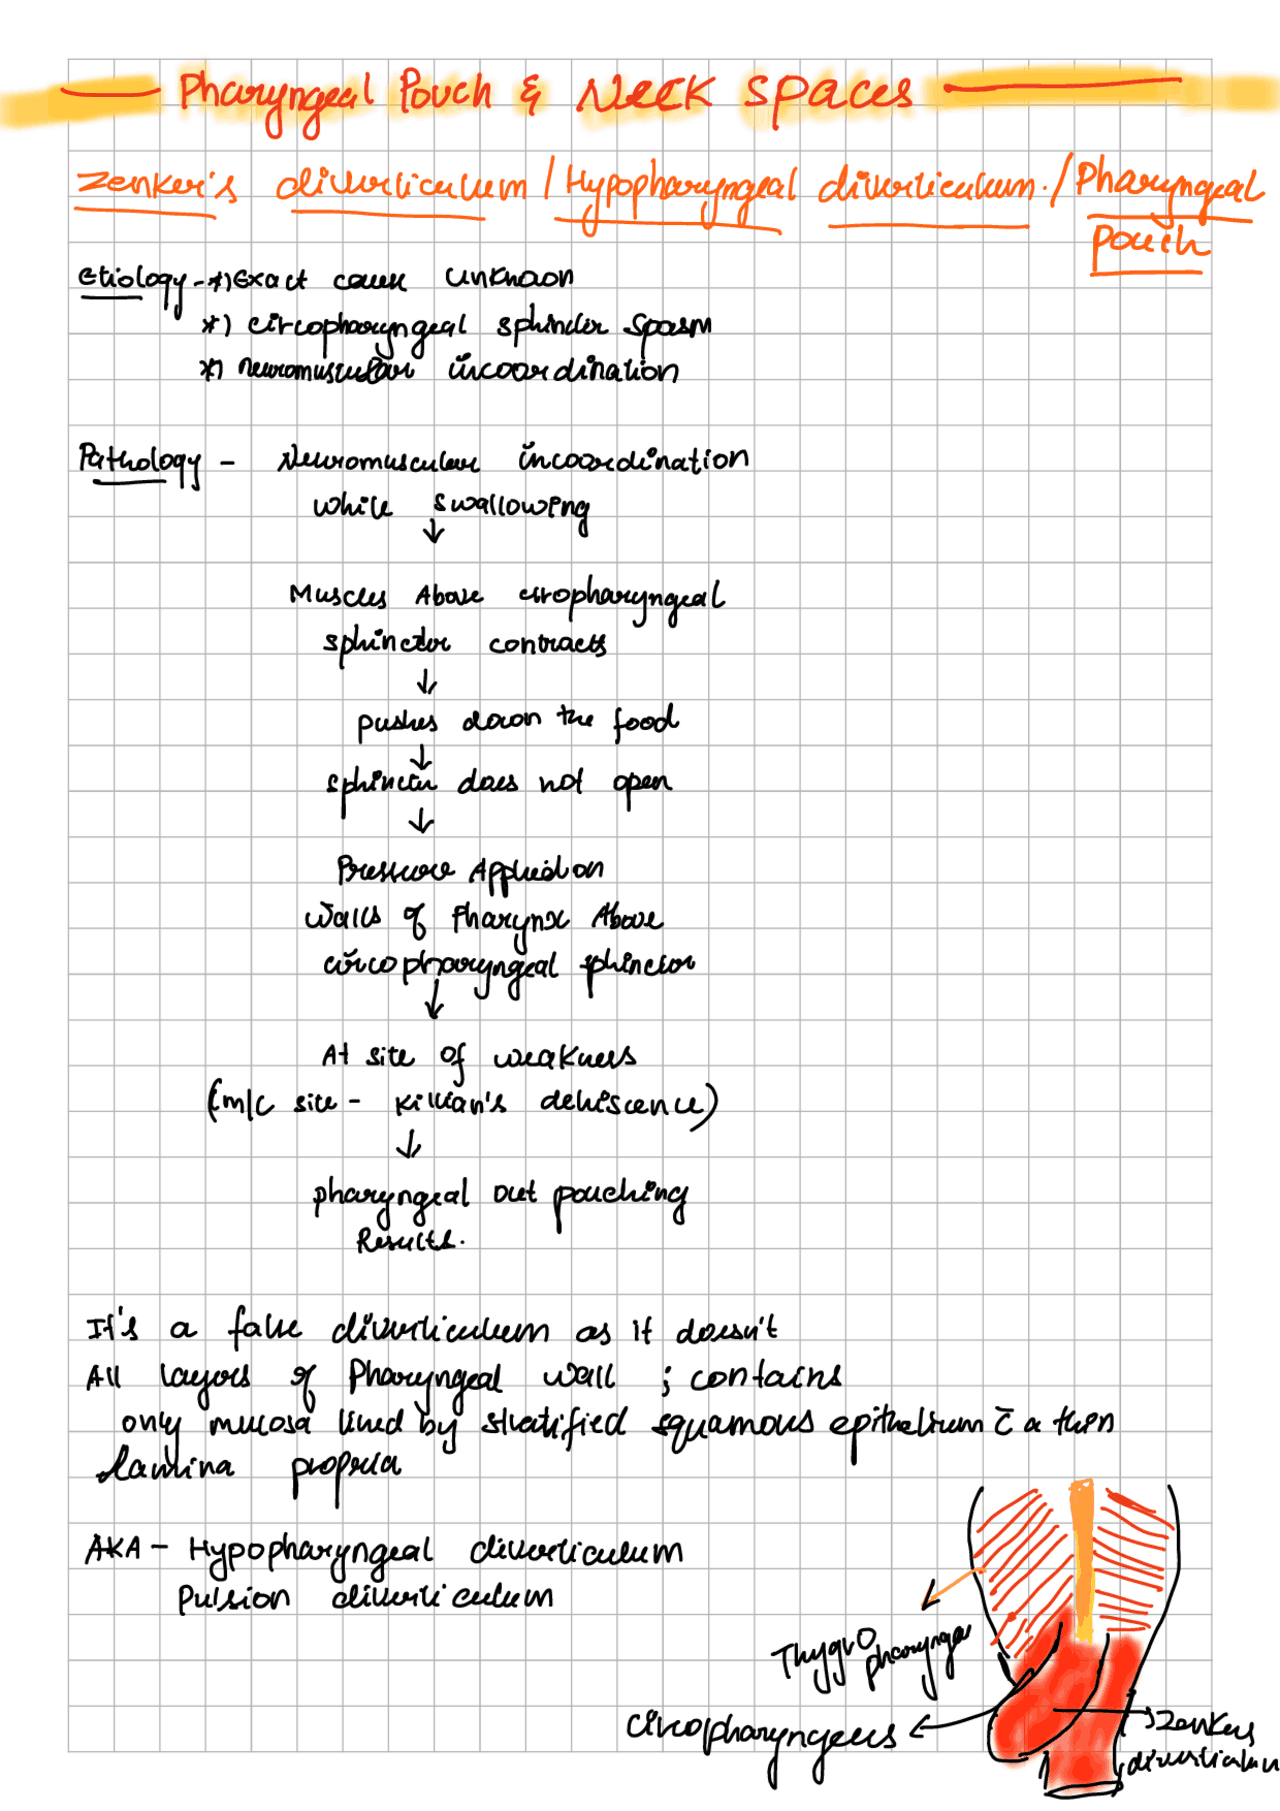 Pharyngeal Pouch & Neck Spaces
Zenker's diverticulum / Hypopharyngeal diverticulum. / Pharyngeal
pouch
Etiology - *) Exact cause unknown
*) circopharyngeal sphincter spasm
*) neuromuscular incoordination
Pathology - Neuromuscular incoordination
while swallowing
↓
Muscles Above cropharyngeal
sphincter contracts
↓
pushes down the food
↓
sphincter does not open
↓
Pressure Applied on
walls of Pharynx Above
circopharyngeal sphincter
↓
At site of weakness
(m/c site - killian's dehiscence)
↓
pharyngeal out pouching
Results.
It's a false diverticulum as it doesn't
All layers of Pharyngeal wall ; contains
only mucosa lined by stratified squamous epithelium c̄ a thin
lamina propria
AKA - Hypopharyngeal diverticulum
Pulsion diverticulum
Thyro
pharyngeus
Circopharyngeus
Zenkers
diverticulum